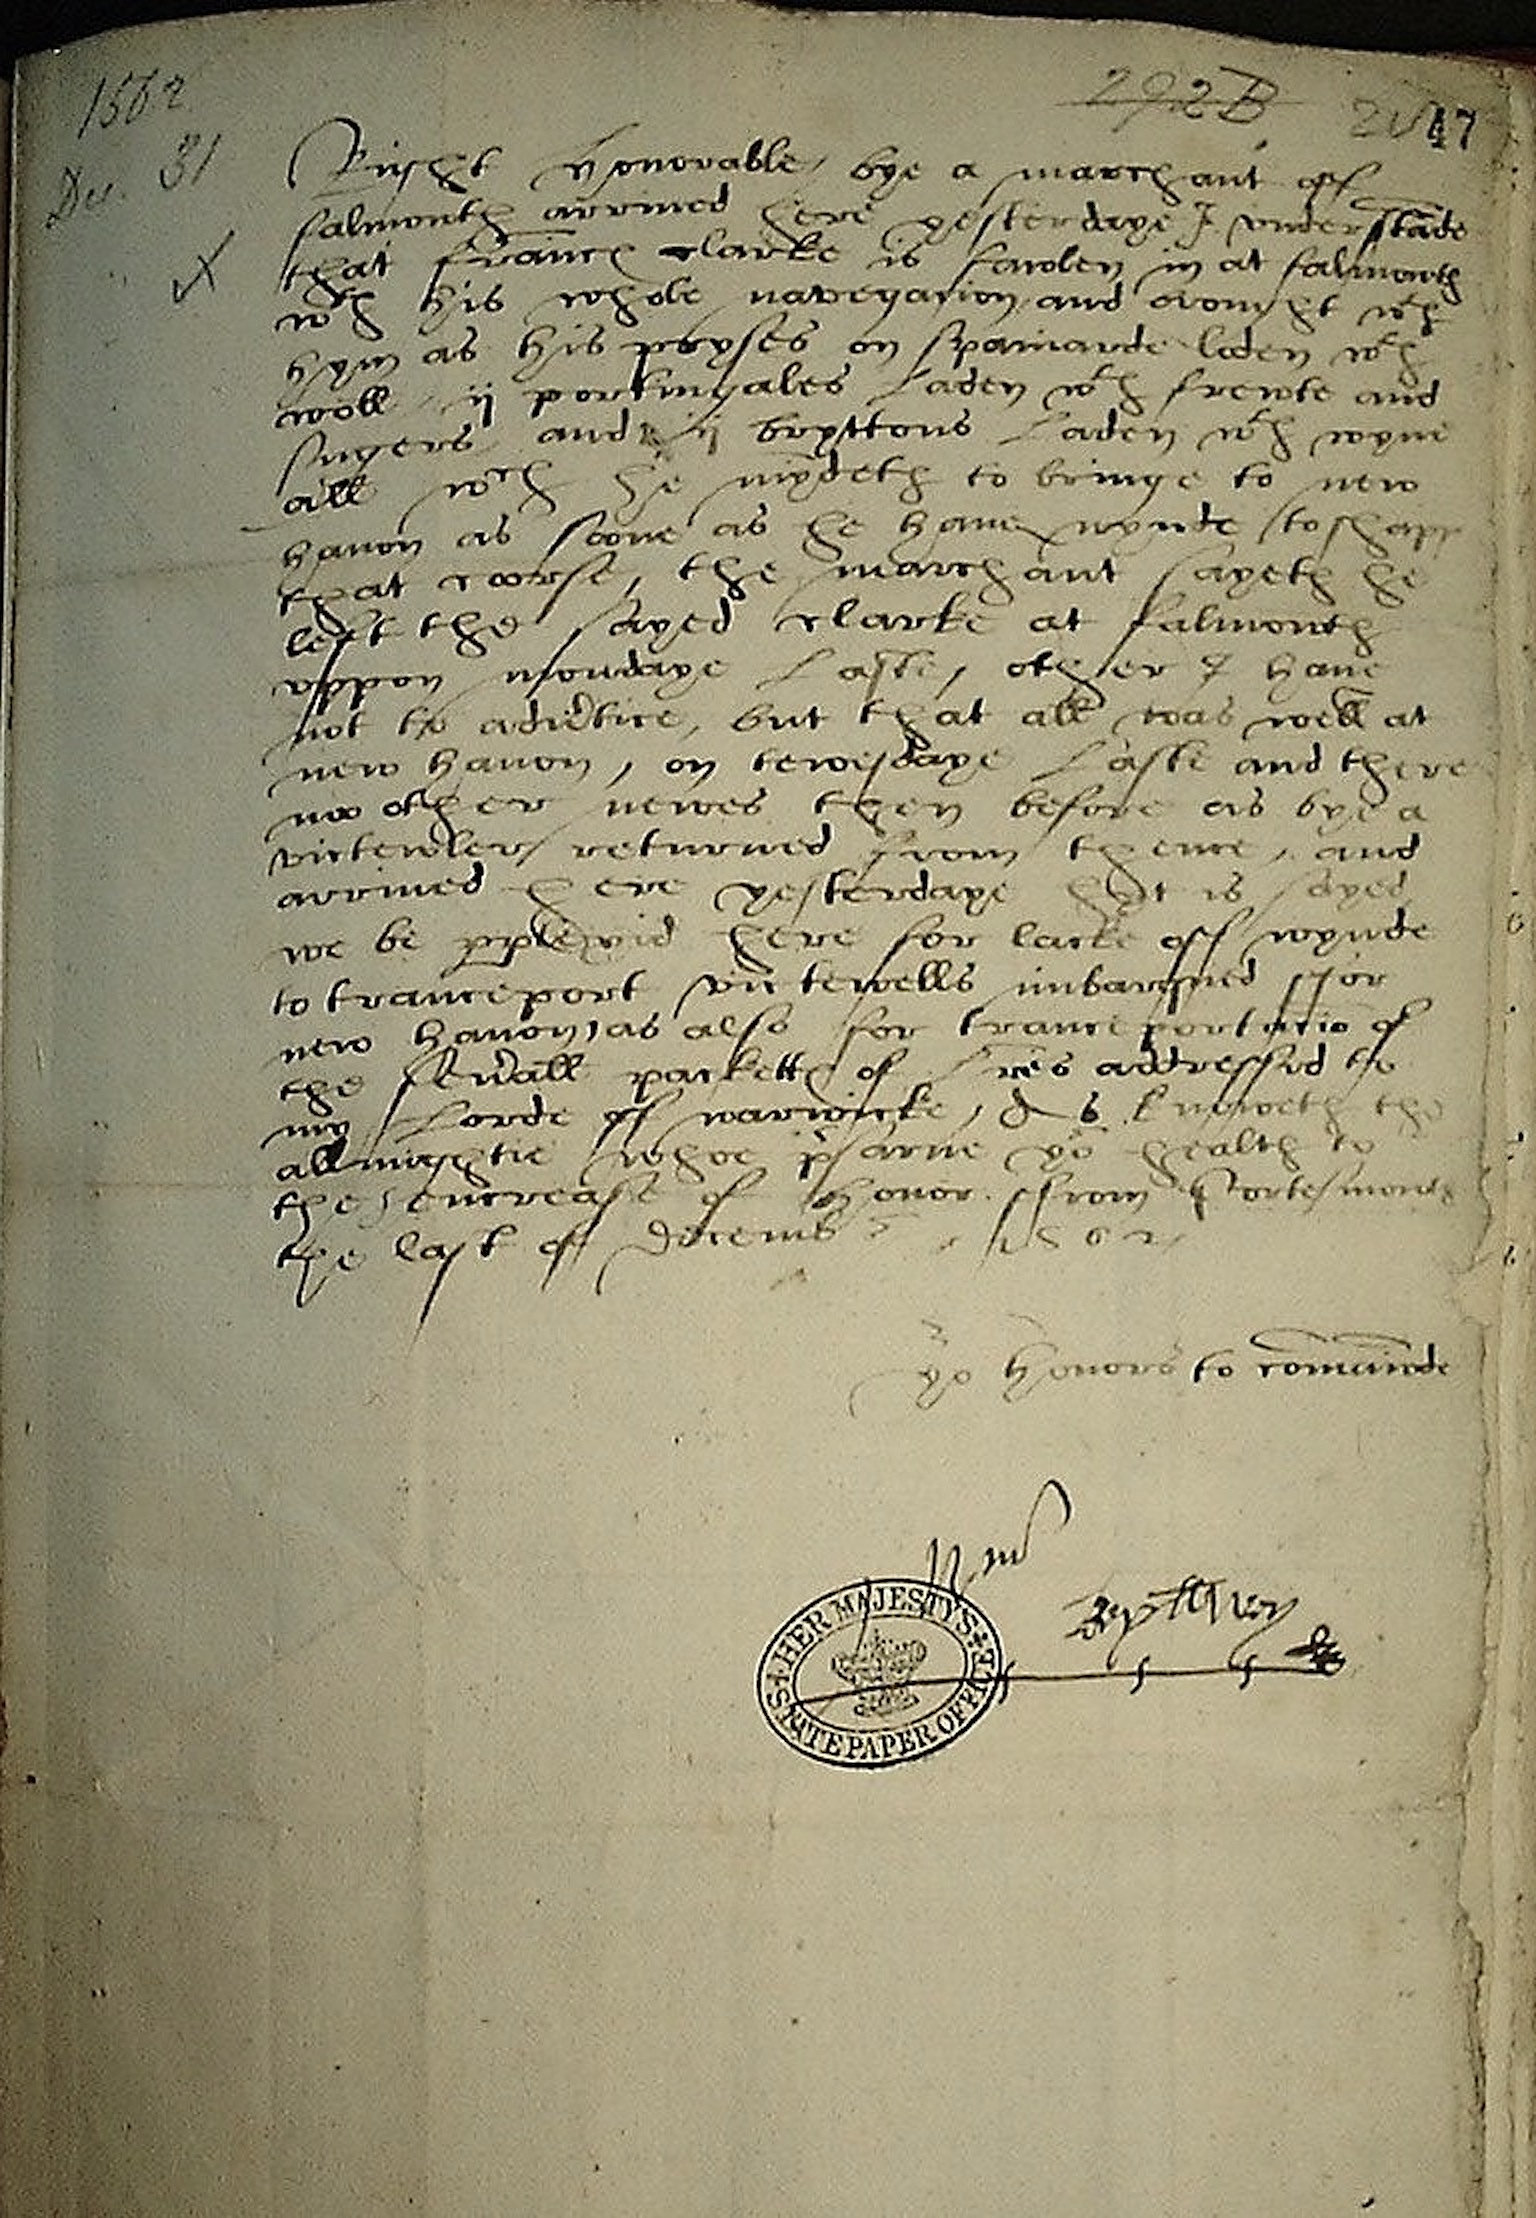 1562
Dec. 31
292B
47
Right honorable, bye a marchant off
falmouth arrived here yesterdaye I understāde
that frāncis clarke is fawlen in at falmowth
wth his whole navegacion, and browght wth
hym as his pryses on Spaniarde laden wth
woll, ij portingales laden wth frewte and
sugers, and ij bryttons laden wth wyne
all wch he myndeth to bringe to new
haven as soone as he have wynde to shape
that coorse, the marchant sayeth he
left the sayed clarke at falmouth
uppon mondaye laste, other I have
not to advertice, but that all was well at
new haven, on tewesdaye laste and there
no other newes then before as bye a
victewler returned from thence, and
arrived here yesterdaye it is sayed
we be here for lacke off wynde
to tranceport victewells imbarqued ffor
new haven, as also for tranceportacio of
the sevall packetts of lres addressed to
my Lorde of warwicke, as knoweth the
allmyghtie whoe pserve yor health to
the encrease of honor. ffrom Portesmouth
the last of Decemb 1562
yor honors to comaunde
HER MAJESTYS
STATE PAPER OFFICE